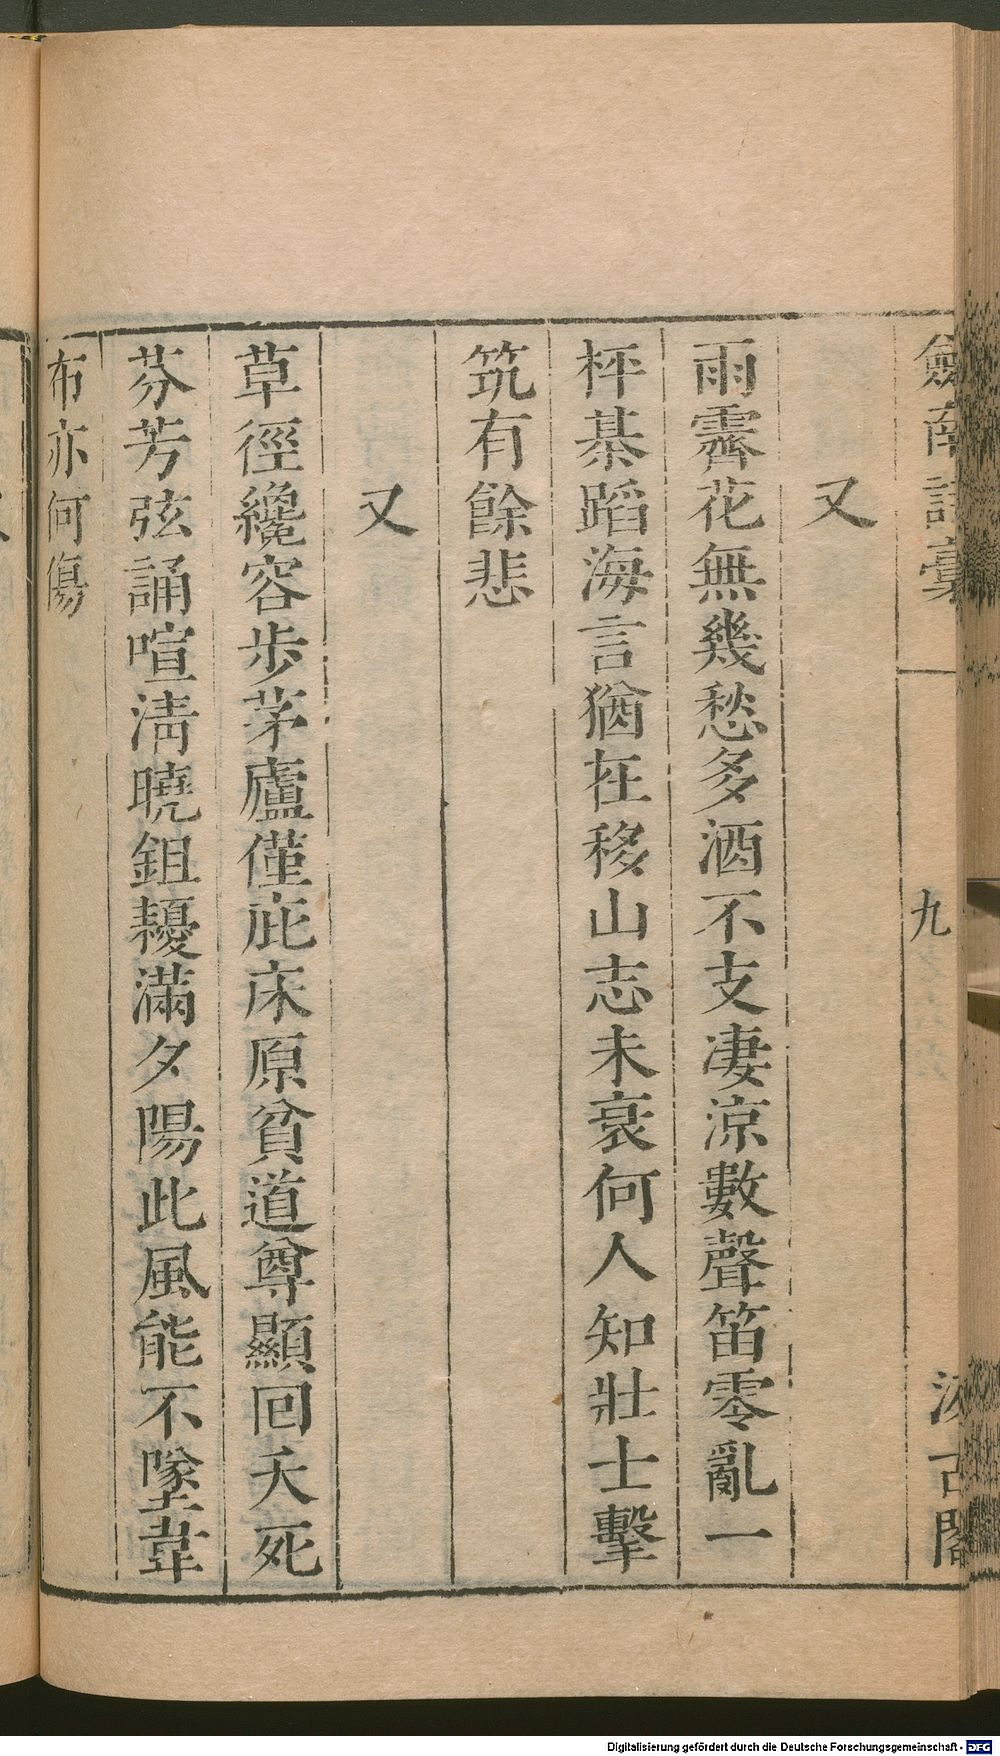 劍南詩稾
九
汲古閣
又
雨霽花無幾愁多酒不支凄涼數聲笛零亂一
枰棊蹈海言猶在移山志未衰何人知壯士擊
筑有餘悲
又
草徑纔容步茅廬僅庇床原貧道尊顯回夭死
芬芳弦誦喧淸曉鉏耰滿夕陽此風能不墜韋
布亦何傷
Digitalisierung gefördert durch die Deutsche Forschungsgemeinschaft - DFG